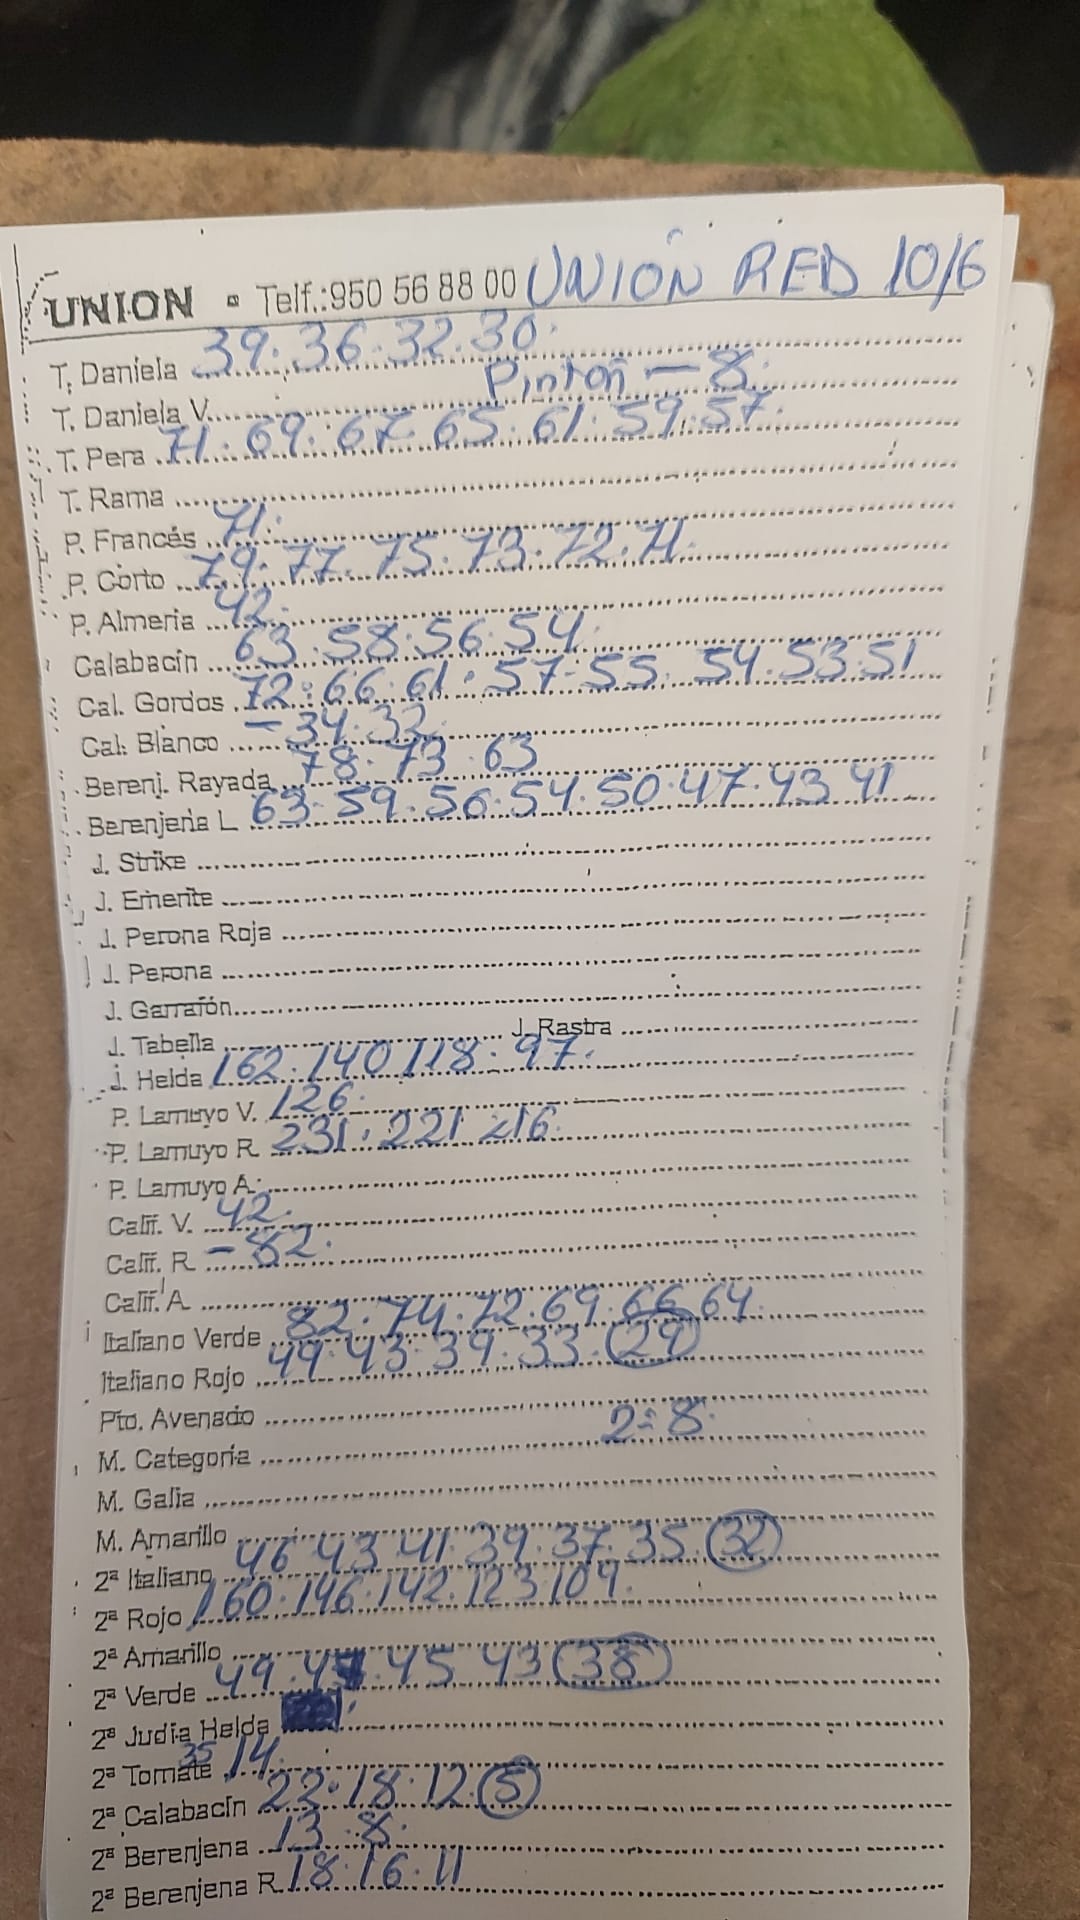 UNION - Telf.:950 56 88 00 UNIÓN RED 10/6
T. Daniela 39.36.32.30.
T. Daniela V. Pintoñ - 8.
T. Pera 71.69.67.65.61.59.57.
T. Rama
P. Francés 71.
P. Corto 79.77.75.73.72.71.
P. Almeria 42.
Calabacín 63.58.56.54.
Cal. Gordos 72.66.61.57.55.54.53.51
Cal. Blanco - 34.32.
Berenj. Rayada 78.73.63
Berenjena L 63.59.56.54.50.47.43 41
J. Strike
J. Emerite
J. Perona Roja
J. Perona
J. Garrafón
J. Tabella J. Rastra
J. Helda 162.140 118.97.
P. Lamuyo V. 126.
P. Lamuyo R. 231.221 216.
P. Lamuyo A.
Calif. V. 42.
Calif. R - 82.
Calif. A
Italiano Verde 82.74.72.69.66.64.
Italiano Rojo 49.43.39.33.29
Pto. Avenado
M. Categoría 2=8.
M. Galia
M. Amarillo
2ª Italiano 46 43 41.39.37.35.32
2ª Rojo 160.146.142.123 109.
2ª Amarillo
2ª Verde 49. 45 43 38
2ª Judía Helda
2ª Tomate 35 14.
2ª Calabacín 22.18.12.5
2ª Berenjena 13.8.
2ª Berenjena R. 18.16.11